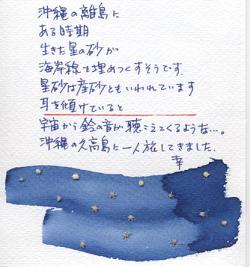 沖縄の離島に
ある時期
生きた星の砂が
海岸線を埋めつくすそうです
星砂は産砂ともいわれています
耳を傾けていると
宇宙から鈴の音が聴こえてくるような…。
沖縄の久高島に一人旅してきました.
幸